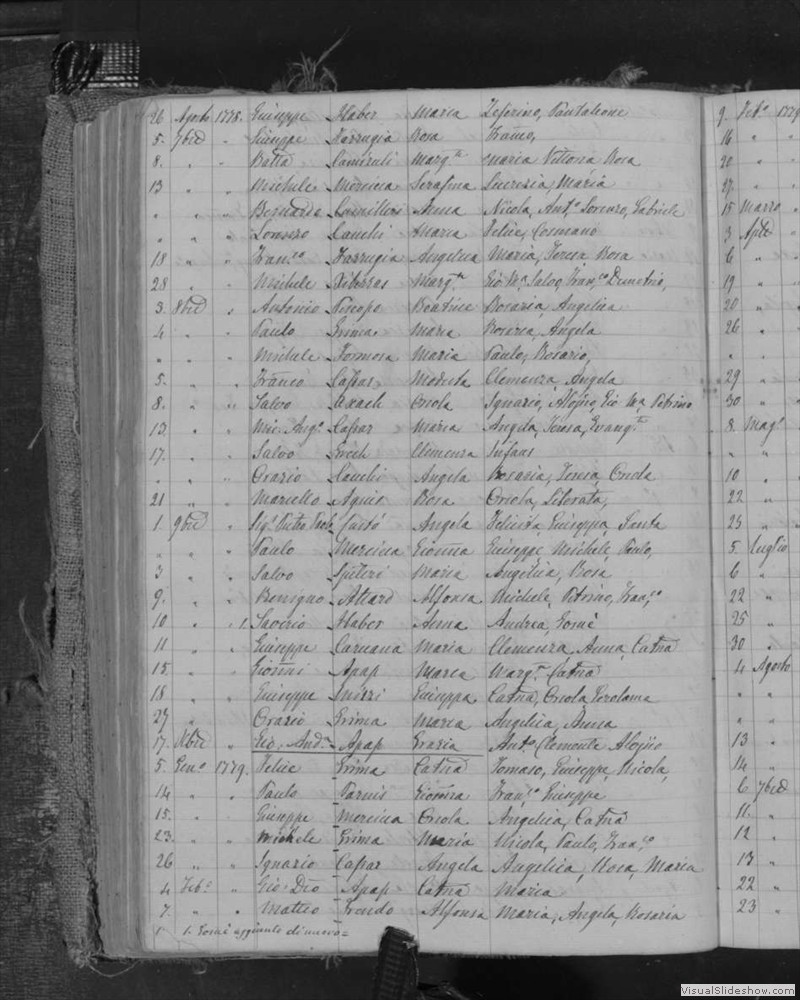 26 Agosto 1778. Giuseppe Haber Maria Zeferino, Pantaleone
5. 7bre " Giuseppe Farrugia Rosa Franco,
8. " " Batta Camiruli Marg.ta Maria Vittoria Rosa
13 " " Michele Mercieca Serafina Lucrezia, Maria
" " " Bernardo Camilleri Anna Nicola, Ant.o Lorenzo, Gabriele
" " " Lorenzo Cauchi Maria Felice, Cosmano
18 " " Fran.co Farrugia Angelica Maria, Teresa Rosa
28 " " Michele Xiberras Marg.ta Gio M.a Salvo, Fran.co Demetrio,
3. 8bre " Antonio Piscopo Beatrice Rosaria, Angelica
4 " " Paulo Grima Maria Rosaria, Angela
" " " Michele Formosa Maria Paulo, Rosario,
5. " " Franco Cassar Modesta Clemenza, Angela
8. " " Salvo Axach Orsola Ignazio, Aloisio, Gio M.a Petrino
13. " " Mic. Ang.o Cassar Maria Angela, Teresa, Evang.ta
17. " " Salvo Grech Clemenza Infans
" " " Orazio Cauchi Angela Rosaria, Teresa, Orsola
21 " " Marcello Agius Rosa Orsola, Liberata,
1. 9bre " Sig.r Pietro Paolo Justo Angela Felicita, Giuseppa, Santa
" " " Paulo Mercieca Gionna Giuseppe Michele, Paulo,
3 " " Salvo Spiteri Maria Angelica, Rosa
9. " " Benigno Attard Alfonsa Michele, Vittorio, Fran.co
10 " " 1. Saverio Haber Anna Andrea, Gosmè
11 " " Giuseppe Caruana Maria Clemenza, Anna, Catna
15. " " Gionni Apap Marca Marg.ta Catna
18. " " Giuseppe Mizzi Giuseppa Catna, Orsola Gerolama
27 " " Orazio Grima Maria Angelica, Anna
17. Xbre " Gio. And.a Apap Grazia Ant.o Clemente Aloisio
5. Gen.o 1779. Felice Grima Catna Tomaso, Giuseppe, Nicola,
14 " " Paulo Parnis Gionna Fran.co Giuseppe
15. " " Giuseppe Mercieca Orsola Angelica, Catna
23. " " Michele Grima Maria Nicola, Paulo, Fran.co
26 " " Ignazio Cassar Angela Angelica, Rosa, Maria
4 Feb.o " Gio: Dio Apap Catna Maria
7. " " Matteo Trendo Alfonsa Maria, Angela, Rosaria
1. Gosmè aggiunto di nuovo =
9. Feb.o 1779
16 " "
20 " "
27. " "
15 Marzo
3 Aple
6 "
19 "
20 "
26 "
" "
29 "
30 "
8. Mag.o
" "
10 "
22 "
25 "
5. Luglio
6 "
22 "
25 "
30 "
4 Agosto
" "
" "
13 "
14 "
6 7bre
11. "
12 "
13 "
22 "
23 "
VisualSlideshow.com